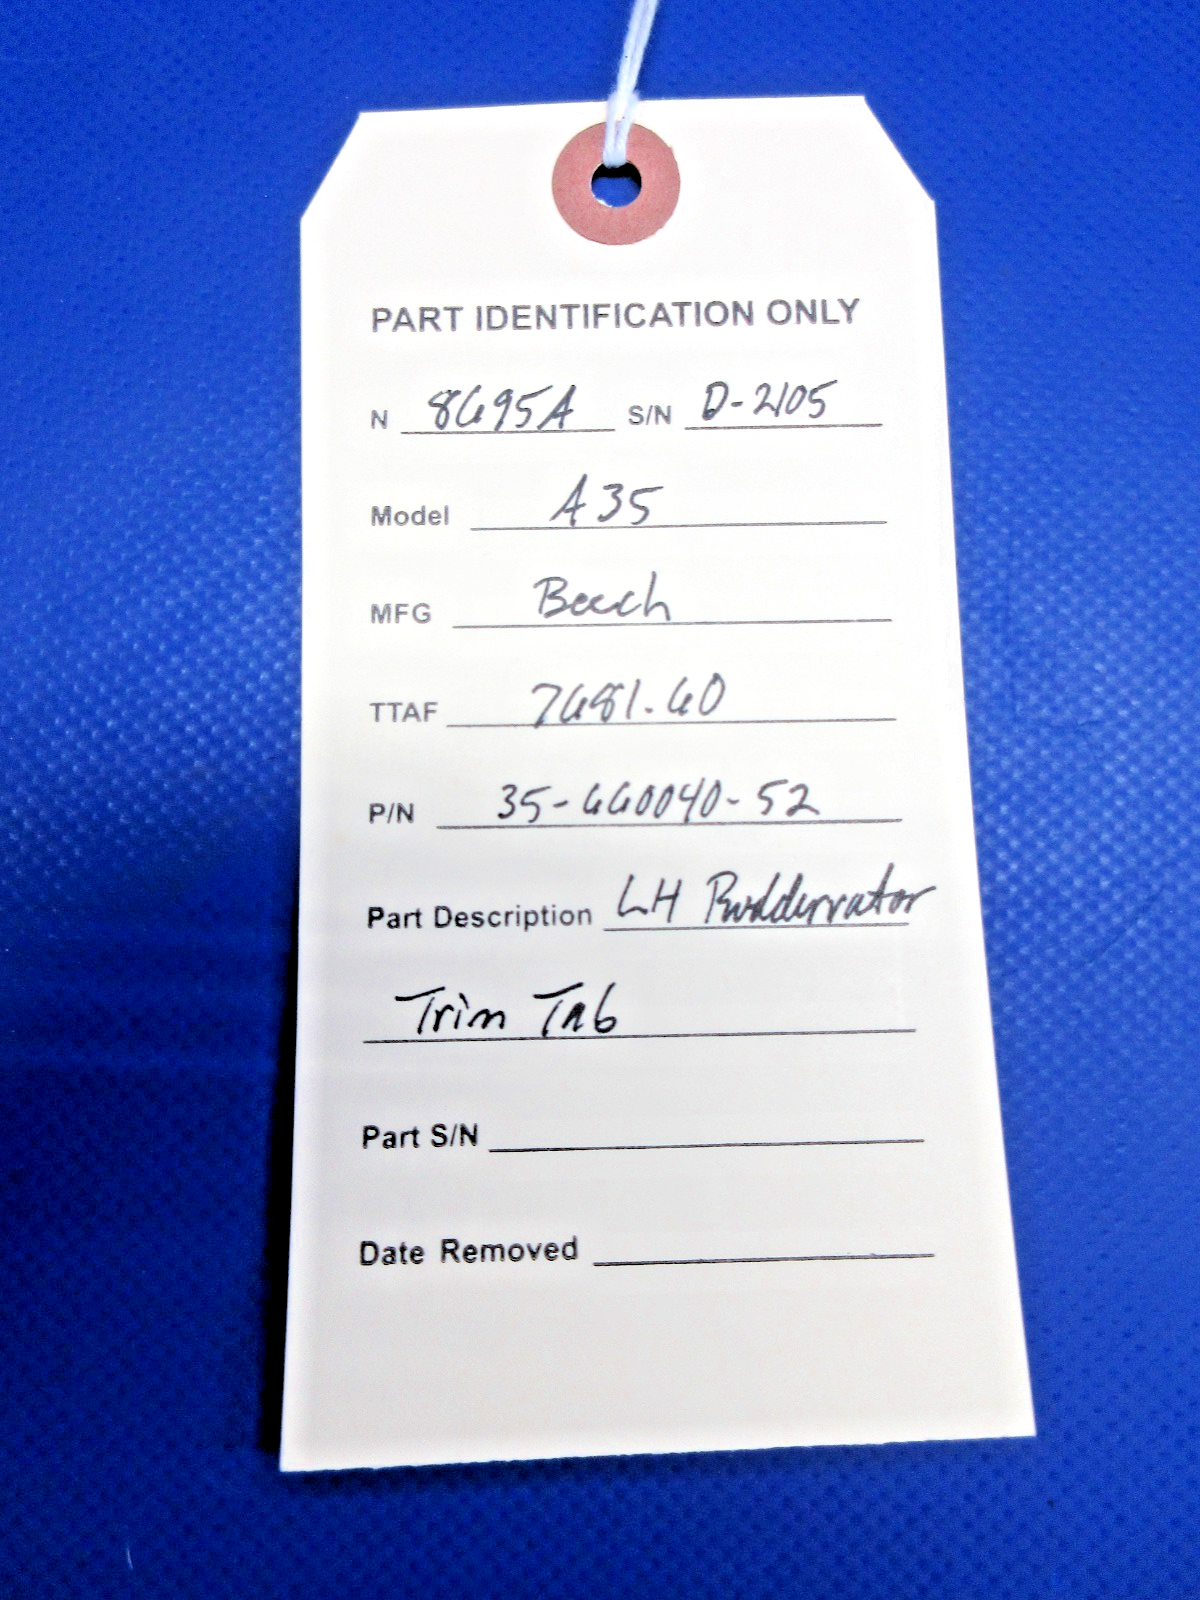 PART IDENTIFICATION ONLY
N 8695A S/N D-2105
Model A35
MFG Beech
TTAF 7681.60
P/N 35-660040-52
Part Description LH Ruddervator
Trim Tab
Part S/N
Date Removed